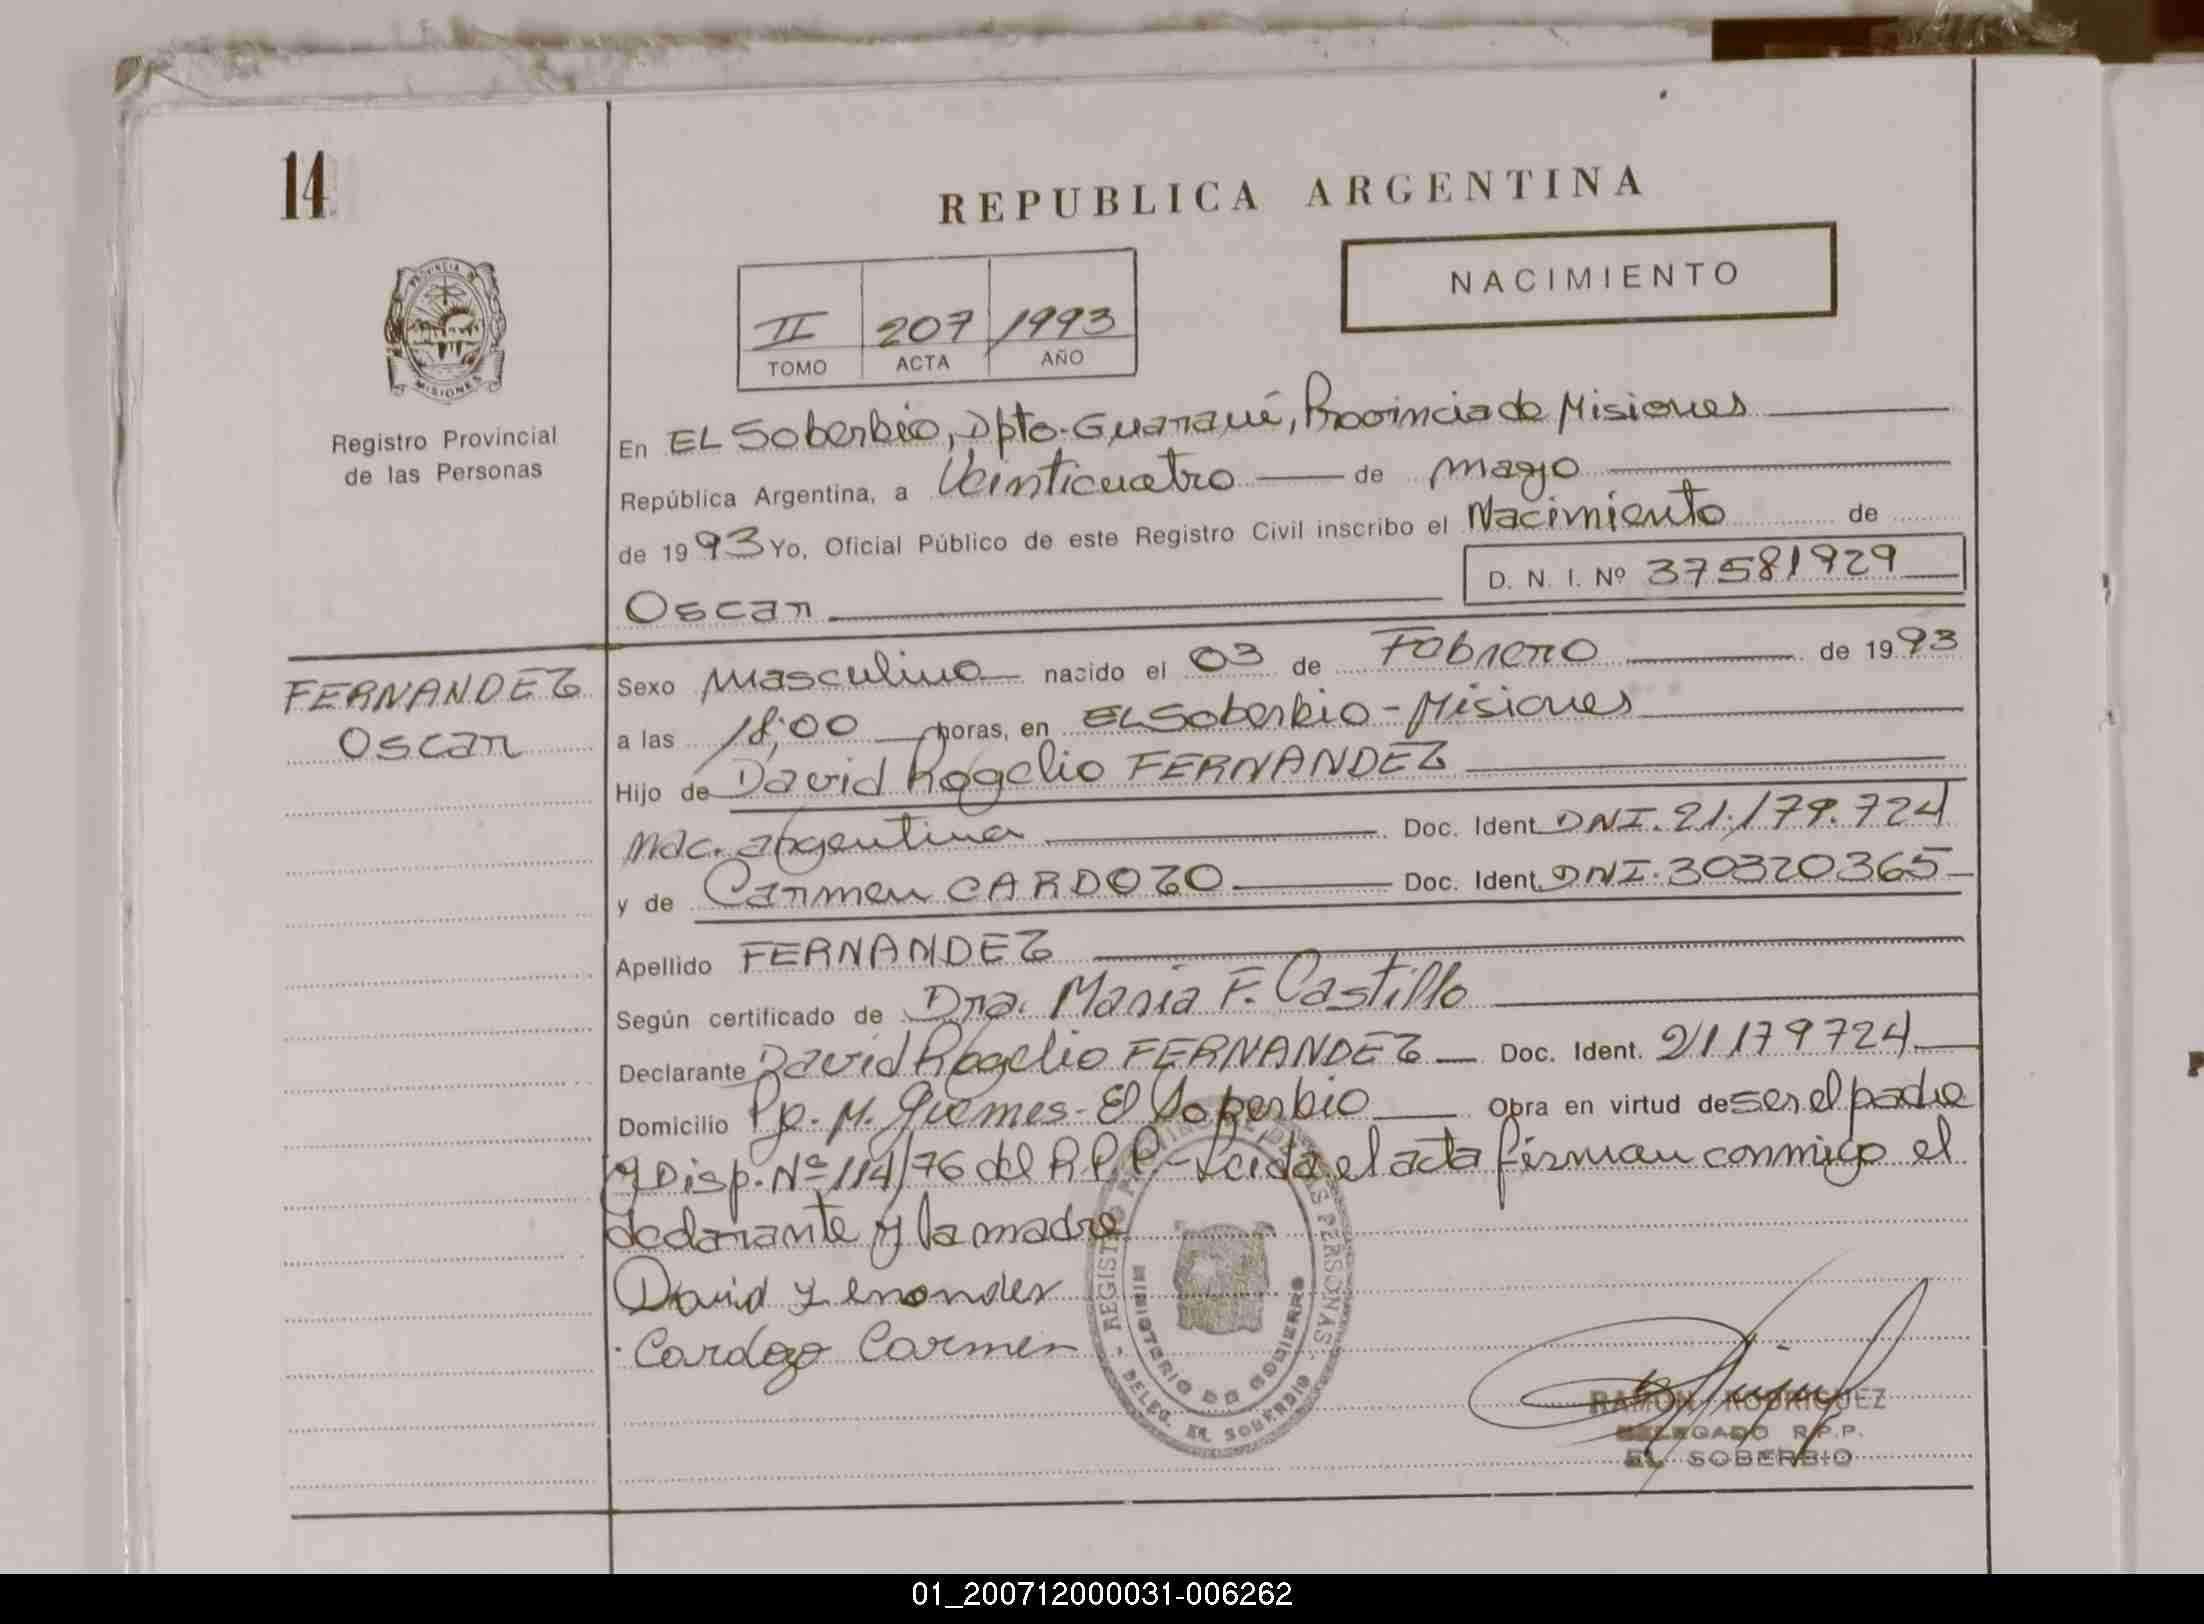 14
REPUBLICA ARGENTINA
NACIMIENTO
PROVINCIA DE
MISIONES
II 207 1993
TOMO ACTA AÑO
Registro Provincial
de las Personas
En EL Soberbio, Dpto. Guaraní, Provincia de Misiones
República Argentina, a Veinticuatro de mayo
de 1993 Yo, Oficial Público de este Registro Civil inscribo el Nacimiento de
D. N. I. Nº 37581929
Oscar
FERNANDEZ
Oscar
Sexo masculino nacido el 03 de Febrero de 1993
a las 18,00 horas, en EL Soberbio - Misiones
Hijo de David Rogelio FERNANDEZ
nac. argentina Doc. Ident. DNI. 21.179.724
y de Carmen CARDOZO Doc. Ident. DNI. 30320365
Apellido FERNANDEZ
Según certificado de Dra. Maria F. Castillo
Declarante David Rogelio FERNANDEZ Doc. Ident. 21179724
Domicilio Pje. M. Guemes - El Soberbio Obra en virtud de ser el padre
y Disp. Nº 114/76 del R.P.P. - Leida el acta firman conmigo el
declarante y la madre
David Fernandez
Cardozo Carmen
- REGISTRO PROVINCIAL DE LAS PERSONAS -
MINISTERIO DE GOBIERNO
DELEG. EL SOBERBIO
RAMON RODRIGUEZ
DELEGADO R.P.P.
EL SOBERBIO
01_200712000031-006262